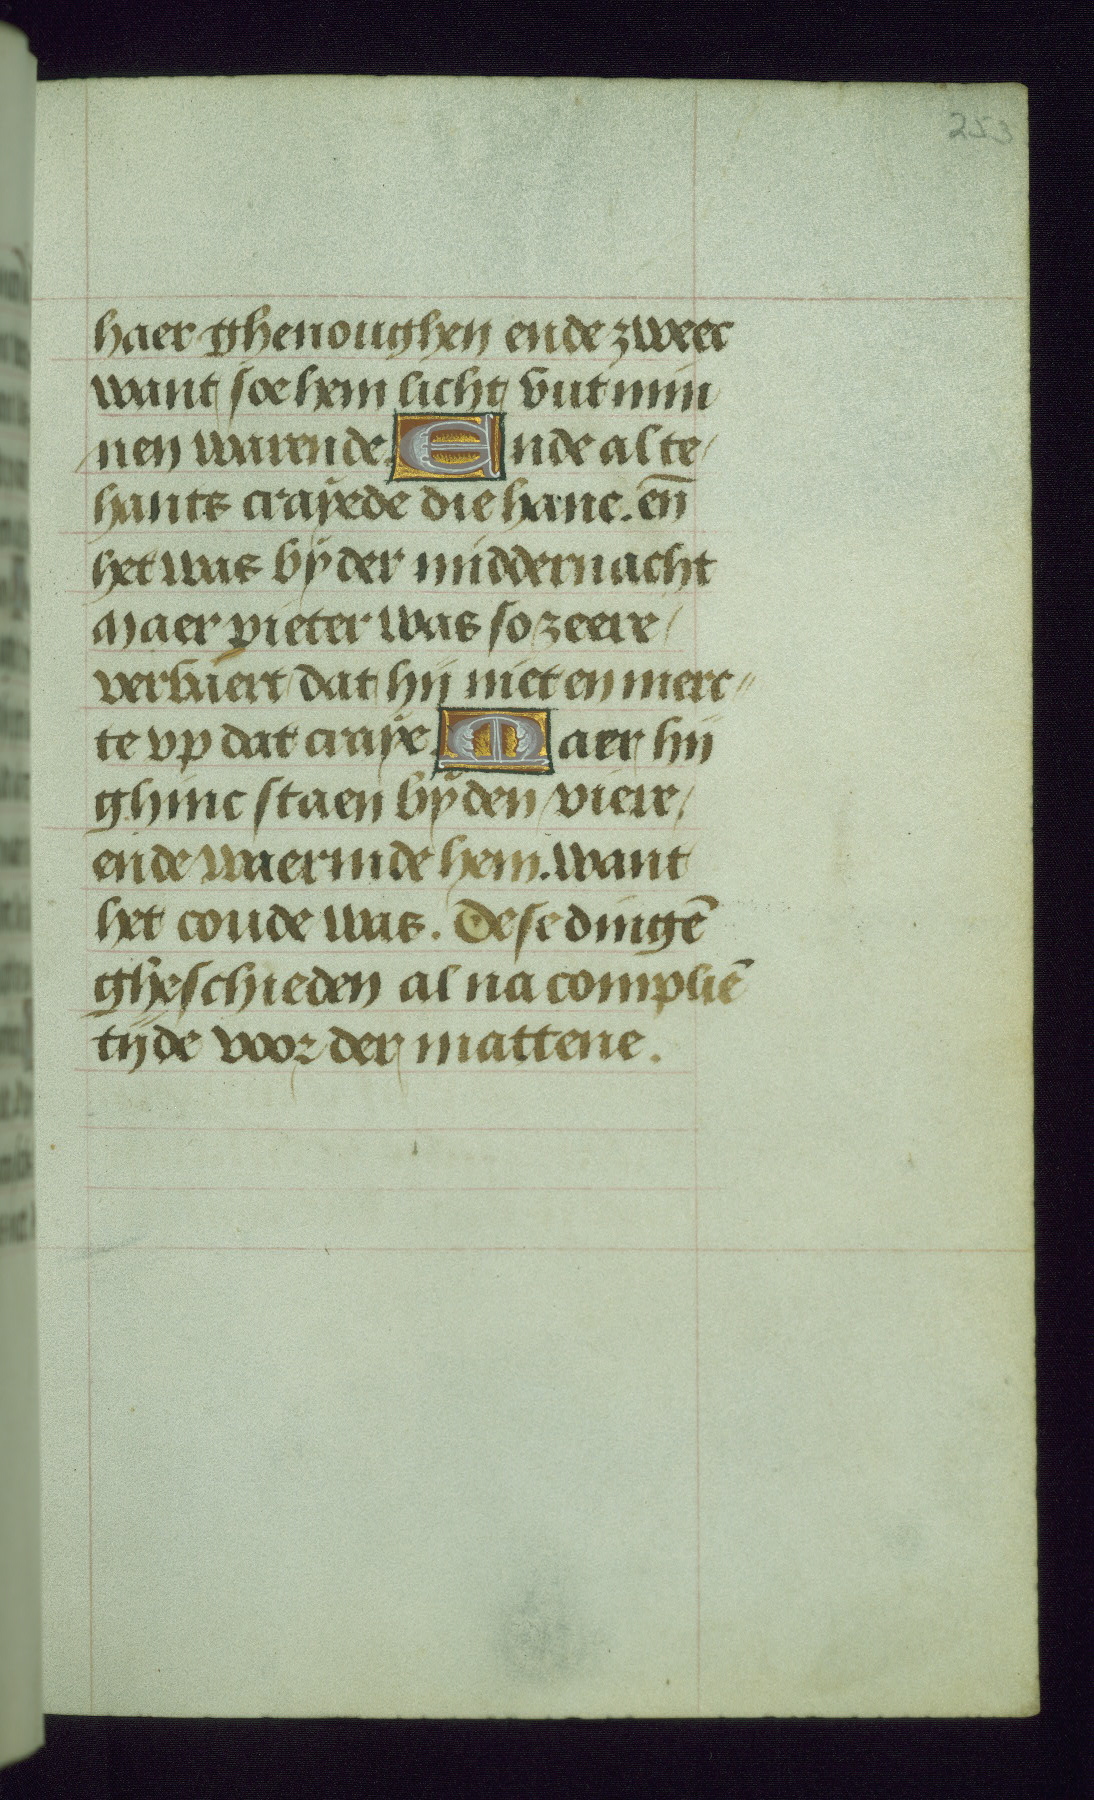 253
haer ghenoughen ende zweer
want soe hem licht vut min
nen warende. Ende al te
hants crayede die hane. en̄
het was by der middernacht
Maer pieter was so zeere
verbaert dat hij niet en merc
te vp dat craye. Maer hij
ghinc staen by den viere
ende waermde hem. want
het coude was. Dese dingē
gheschieden al na compliē
tijde voor der mattene.